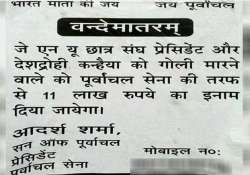 भारत माता की जय जय पूर्वांचल
वन्देमातरम्
जे एन यू छात्र संघ प्रेसिडेंट और
देशद्रोही कन्हैया को गोली मारने
वाले को पूर्वांचल सेना की तरफ
से 11 लाख रुपये का इनाम
दिया जायेगा।
आदर्श शर्मा,
सन ऑफ पूर्वांचल
प्रेसिडेंट मोबाइल न०:
पूर्वांचल सेना